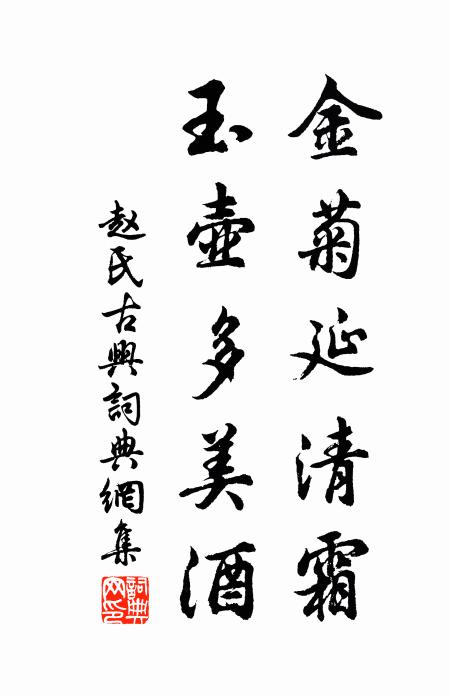 金菊延清霜
玉壺多美酒
赵氏古興詞典網集
詞典
网印